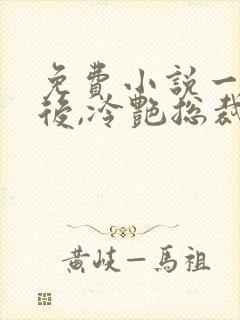 免費小說一
後,冷艷總裁
黄岐—馬祖